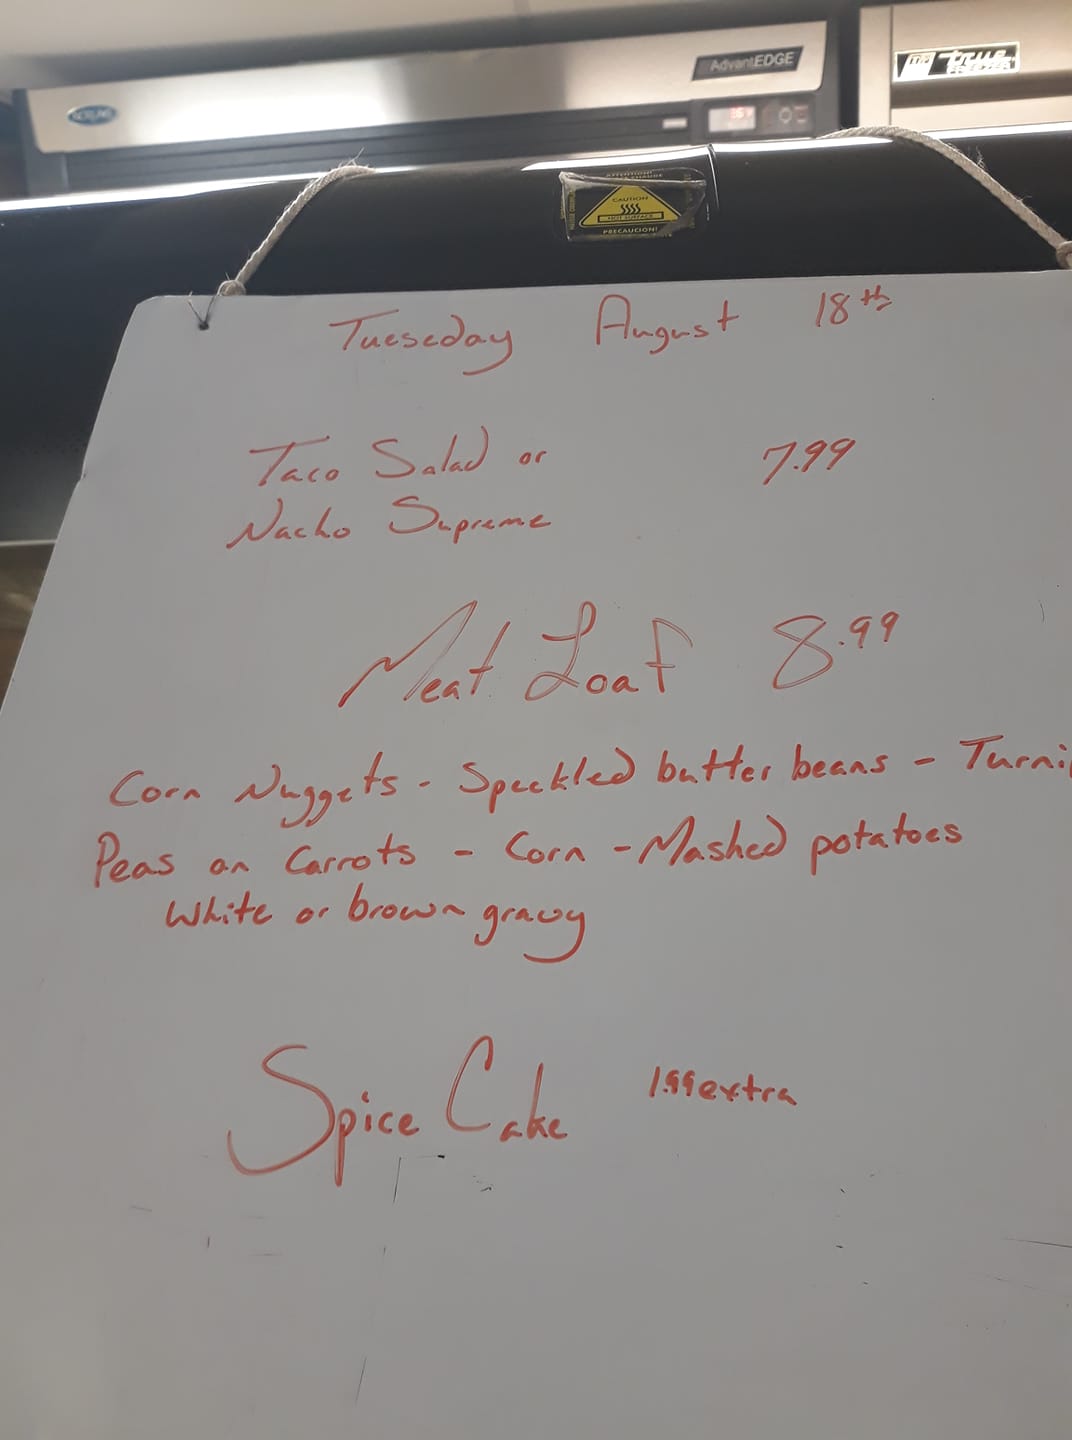 AdvantEDGE
true
FREEZER
CAUTION
HOT SURFACE
PRECAUCION!
Tueseday August 18th
Taco Salad or 7.99
Nacho Supreme
Meat Loaf 8.99
Corn Nuggets - Speckled butter beans - Turni
Peas an Carrots - Corn - Mashed potatoes
White or brown gravy
Spice Cake 1.99 extra